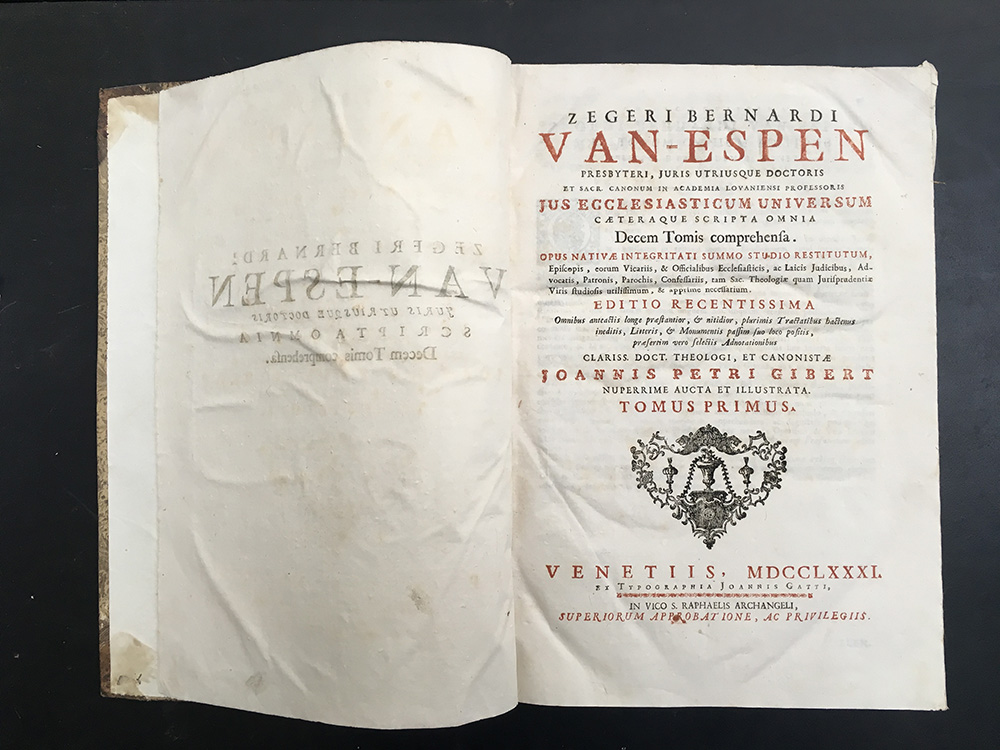 ZEGERI BERNARDI
VAN-ESPEN
JURIS UTRIUSQUE DOCTORIS
SCRIPTA OMNIA
Decem Tomis comprehensa.
ZEGERI BERNARDI
VAN-ESPEN
PRESBYTERI, JURIS UTRIUSQUE DOCTORIS
ET SACR. CANONUM IN ACADEMIA LOVANIENSI PROFESSORIS
JUS ECCLESIASTICUM UNIVERSUM
CÆTERAQUE SCRIPTA OMNIA
Decem Tomis comprehenſa.
OPUS NATIVÆ INTEGRITATI SUMMO STUDIO RESTITUTUM,
Epiſcopis, eorum Vicariis, & Officialibus Eccleſiaſticis, ac Laicis Judicibus, Ad-
vocatis, Patronis, Parochis, Confeſſariis, tam Sac. Theologiæ quam Jurisprudentiæ
Viris ſtudioſis utiliſſimum, & apprime neceſſarium.
EDITIO RECENTISSIMA
Omnibus anteactis longe præſtantior, & nitidior, plurimis Tractatibus hactenus
ineditis, Litteris, & Monumentis paſſim ſuo loco poſitis,
præſertim vero ſelectis Adnotationibus
CLARISS. DOCT. THEOLOGI, ET CANONISTÆ
JOANNIS PETRI GIBERT
NUPERRIME AUCTA ET ILLUSTRATA.
TOMUS PRIMUS.
VENETIIS, MDCCLXXXI.
EX TYPOGRAPHIA JOANNIS GATTI,
IN VICO S. RAPHAELIS ARCHANGELI,
SUPERIORUM APPROBATIONE, AC PRIVILEGIIS.